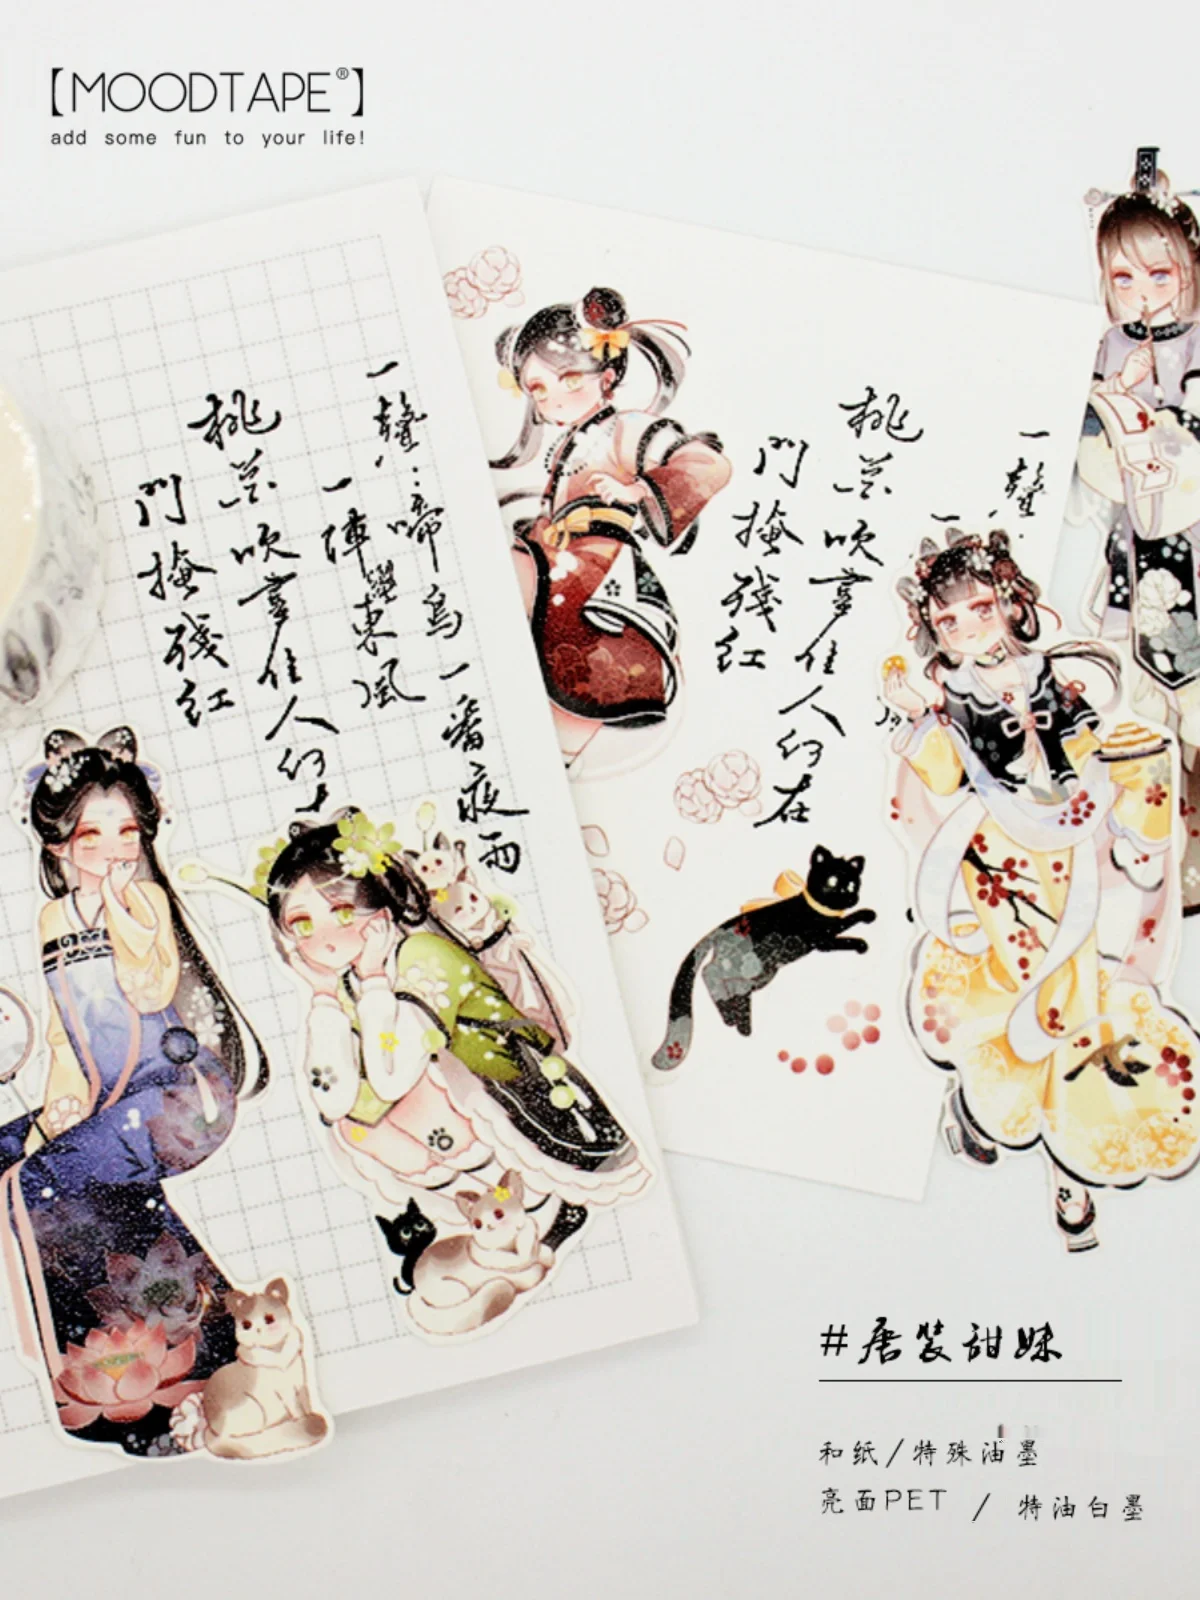 【MOODTAPE®】
add some fun to your life!
一聲啼鳥一番夜雨
一陣東風
桃花吹盡佳人何
門掩殘紅
一聲
一
桃花吹盡佳人何在
門掩殘紅
#唐装甜妹
和纸/特殊油墨
亮面PET / 特油白墨